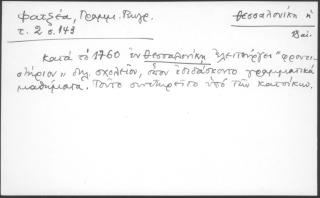 Φατζέα, Γραμμ. Ρωγρ.
Θεσσαλονίκη
τ. 2 σ. 143
18 αἰ.
Κατά τό 1760 ἐν Θεσσαλονίκῃ ἐλειτούργει "φροντι-
στήριον" δηλ. σχολεῖον, ὅπου ἐδιδάσκοντο γραμματικά
μαθήματα. Τοῦτο συνετηρεῖτο ὑπό τῶν κατοίκων.